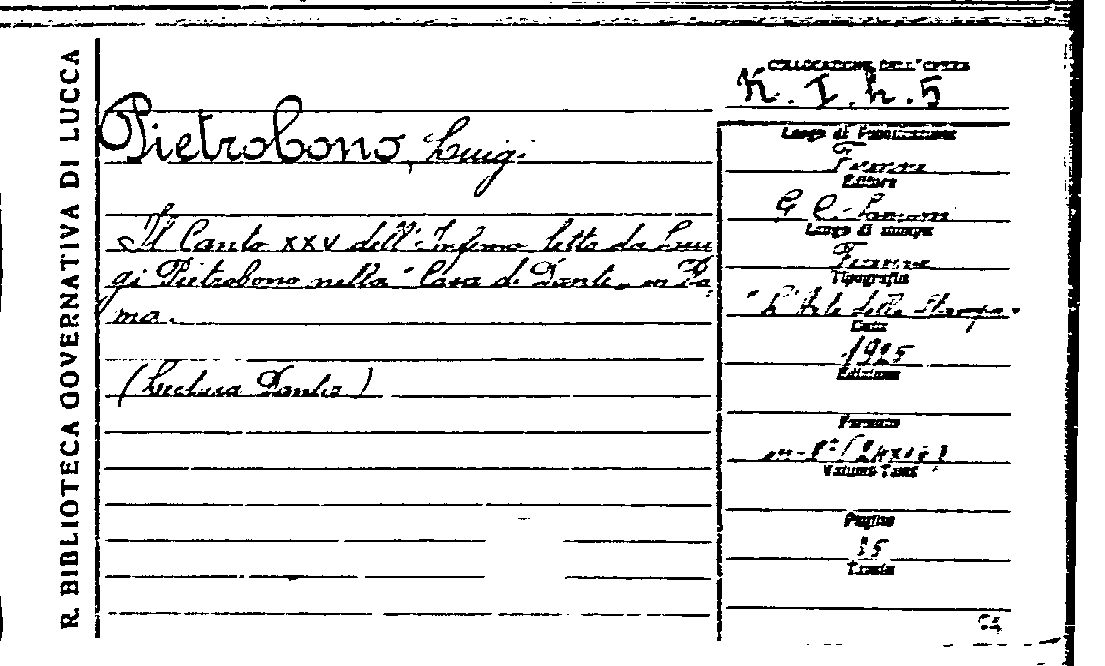 R. BIBLIOTECA GOVERNATIVA DI LUCCA
COLLOCAZIONE DELL'OPERA
K. I. h. 5
Pietrobono, Luigi
Il Canto XXV dell'Inferno letto da Lui
gi Pietrobono nella "Casa di Dante" in Ro
ma.
(Lectura Dantis)
Luogo di Pubblicazione
Firenze
Editore
G. C. Sansoni
Luogo di stampa
Firenze
Tipografia
"L'Arte della Stampa"
Data
1925
Edizione
Formato
in-8°
Volume Tomi
Pagine
35
Tavole